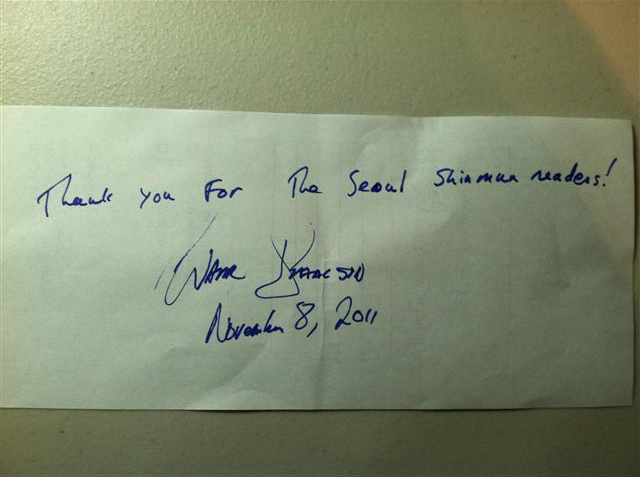 Thank you For The Seoul Shinmun readers!
Walter Isaacson
November 8, 2011